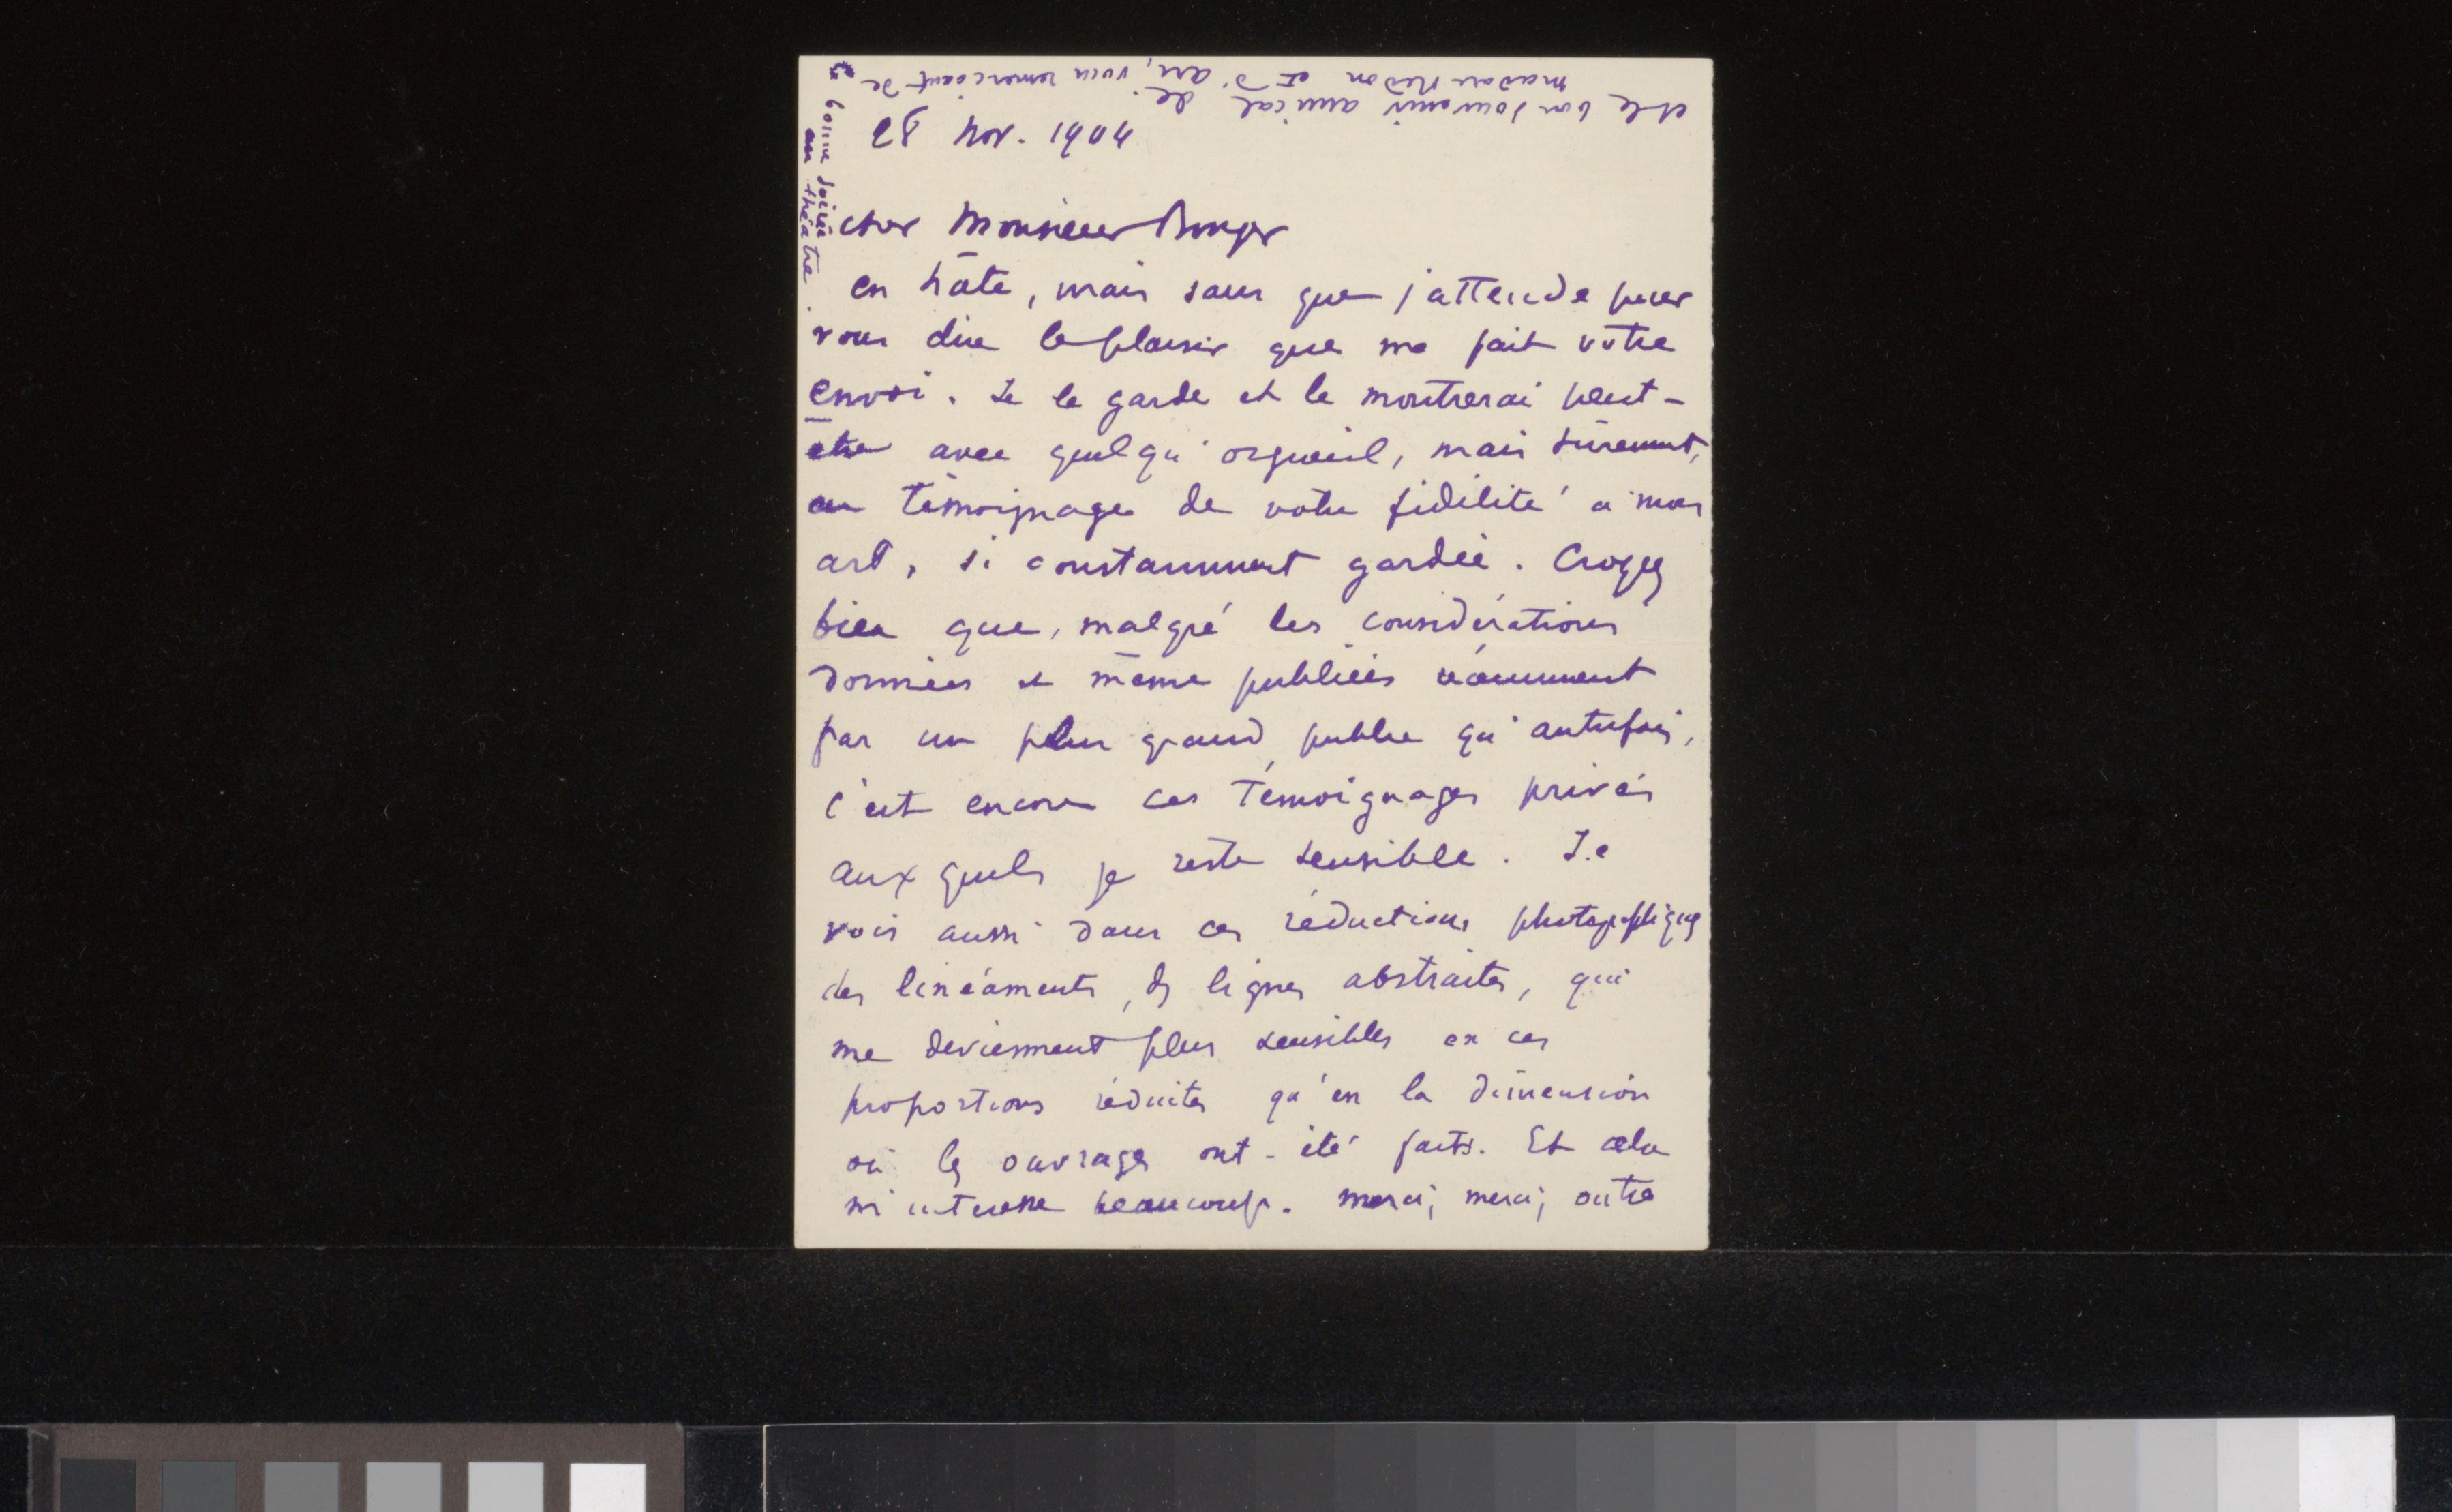 28 Nov. 1904
cher Monsieur Bonger
en hâte, mais sans que j'attende pour
vous dire le plaisir que me fait votre
envoi. Je le garde et le montrerai peut-
être avec quelqu'orgueil, mais sûrement,
en témoignage de votre fidélité à mon
art, si constamment gardée. Croyez
bien que, malgré les considérations
données et même publiées récemment
par un plus grand public qu'autrefois,
c'est encore ces témoignages privés
auxquels je reste sensible. Je
vois aussi dans ces réductions photographiques
des linéaments, des lignes abstraites, qui
me deviennent plus sensibles en ces
proportions réduites qu'en la dimension
où les ouvrages ont-été faits. Et cela
m'intéresse beaucoup. merci, merci, outre
et le bon souvenir amical de
madame Redon et d'Ari, vous remerciant de
la bonne soirée
au théâtre.